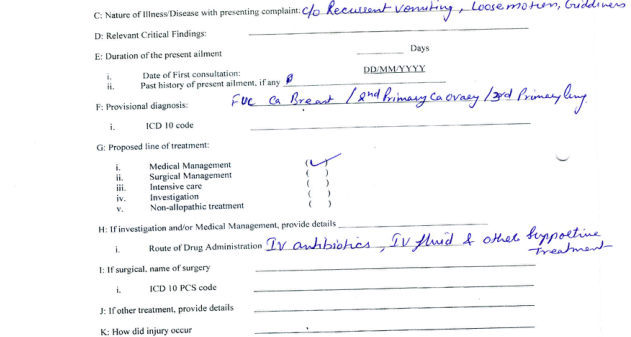 C: Nature of Illness/Disease with presenting complaint: c/o Recurrent vomiting, Loose motion, Giddiness
D: Relevant Critical Findings:
E: Duration of the present ailment ____ Days
i. Date of First consultation: DD/MM/YYYY
ii. Past history of present ailment, if any
F: Provisional diagnosis: FUC Ca Breast / 2nd Primary Ca ovary / 3rd Primary lung
i. ICD 10 code
G: Proposed line of treatment:
i. Medical Management (✓)
ii. Surgical Management ( )
iii. Intensive care ( )
iv. Investigation ( )
v. Non-allopathic treatment ( )
H: If investigation and/or Medical Management, provide details
i. Route of Drug Administration IV antibiotics, IV fluid & other Supportive
Treatment
I: If surgical, name of surgery
i. ICD 10 PCS code
J: If other treatment, provide details
K: How did injury occur